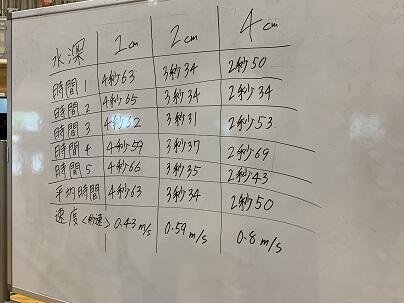 水深 1cm 2cm 4cm
時間1 4秒63 3秒34 2秒50
時間2 4秒65 3秒34 2秒34
時間3 4秒62 3秒31 2秒53
時間4 4秒59 3秒37 2秒69
時間5 4秒66 3秒35 2秒43
平均時間 4秒63 3秒34 2秒50
速度(秒速) 0.43m/s 0.59m/s 0.8m/s